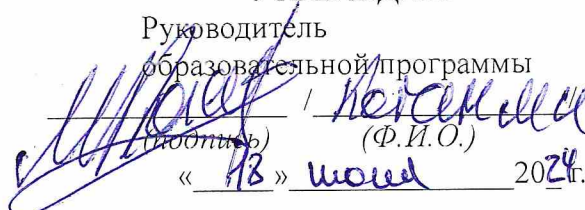 Руководитель
образовательной программы
/ Коган М.С.
(подпись) (Ф.И.О.)
«13» июня 2024 г.